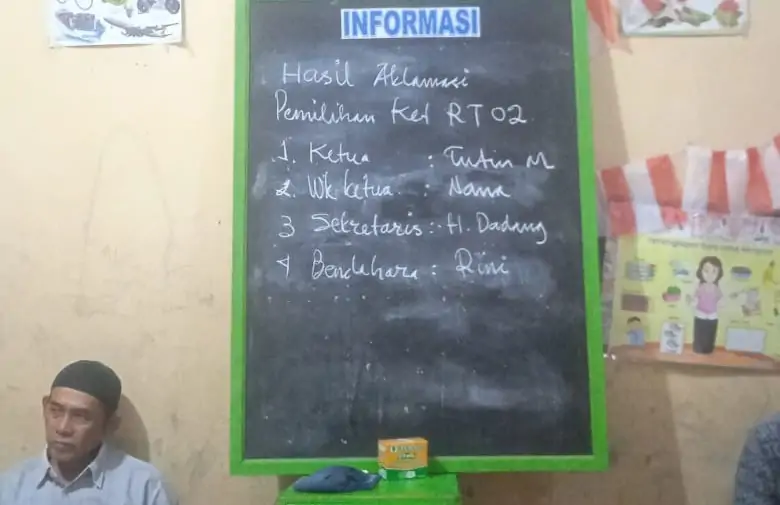 INFORMASI
Hasil Aklamasi
Pemilihan Ket RT 02
1. Ketua : Tutin M
2. Wk ketua : Nana
3 Sekretaris : H. Dadang
4 Bendahara : Rini